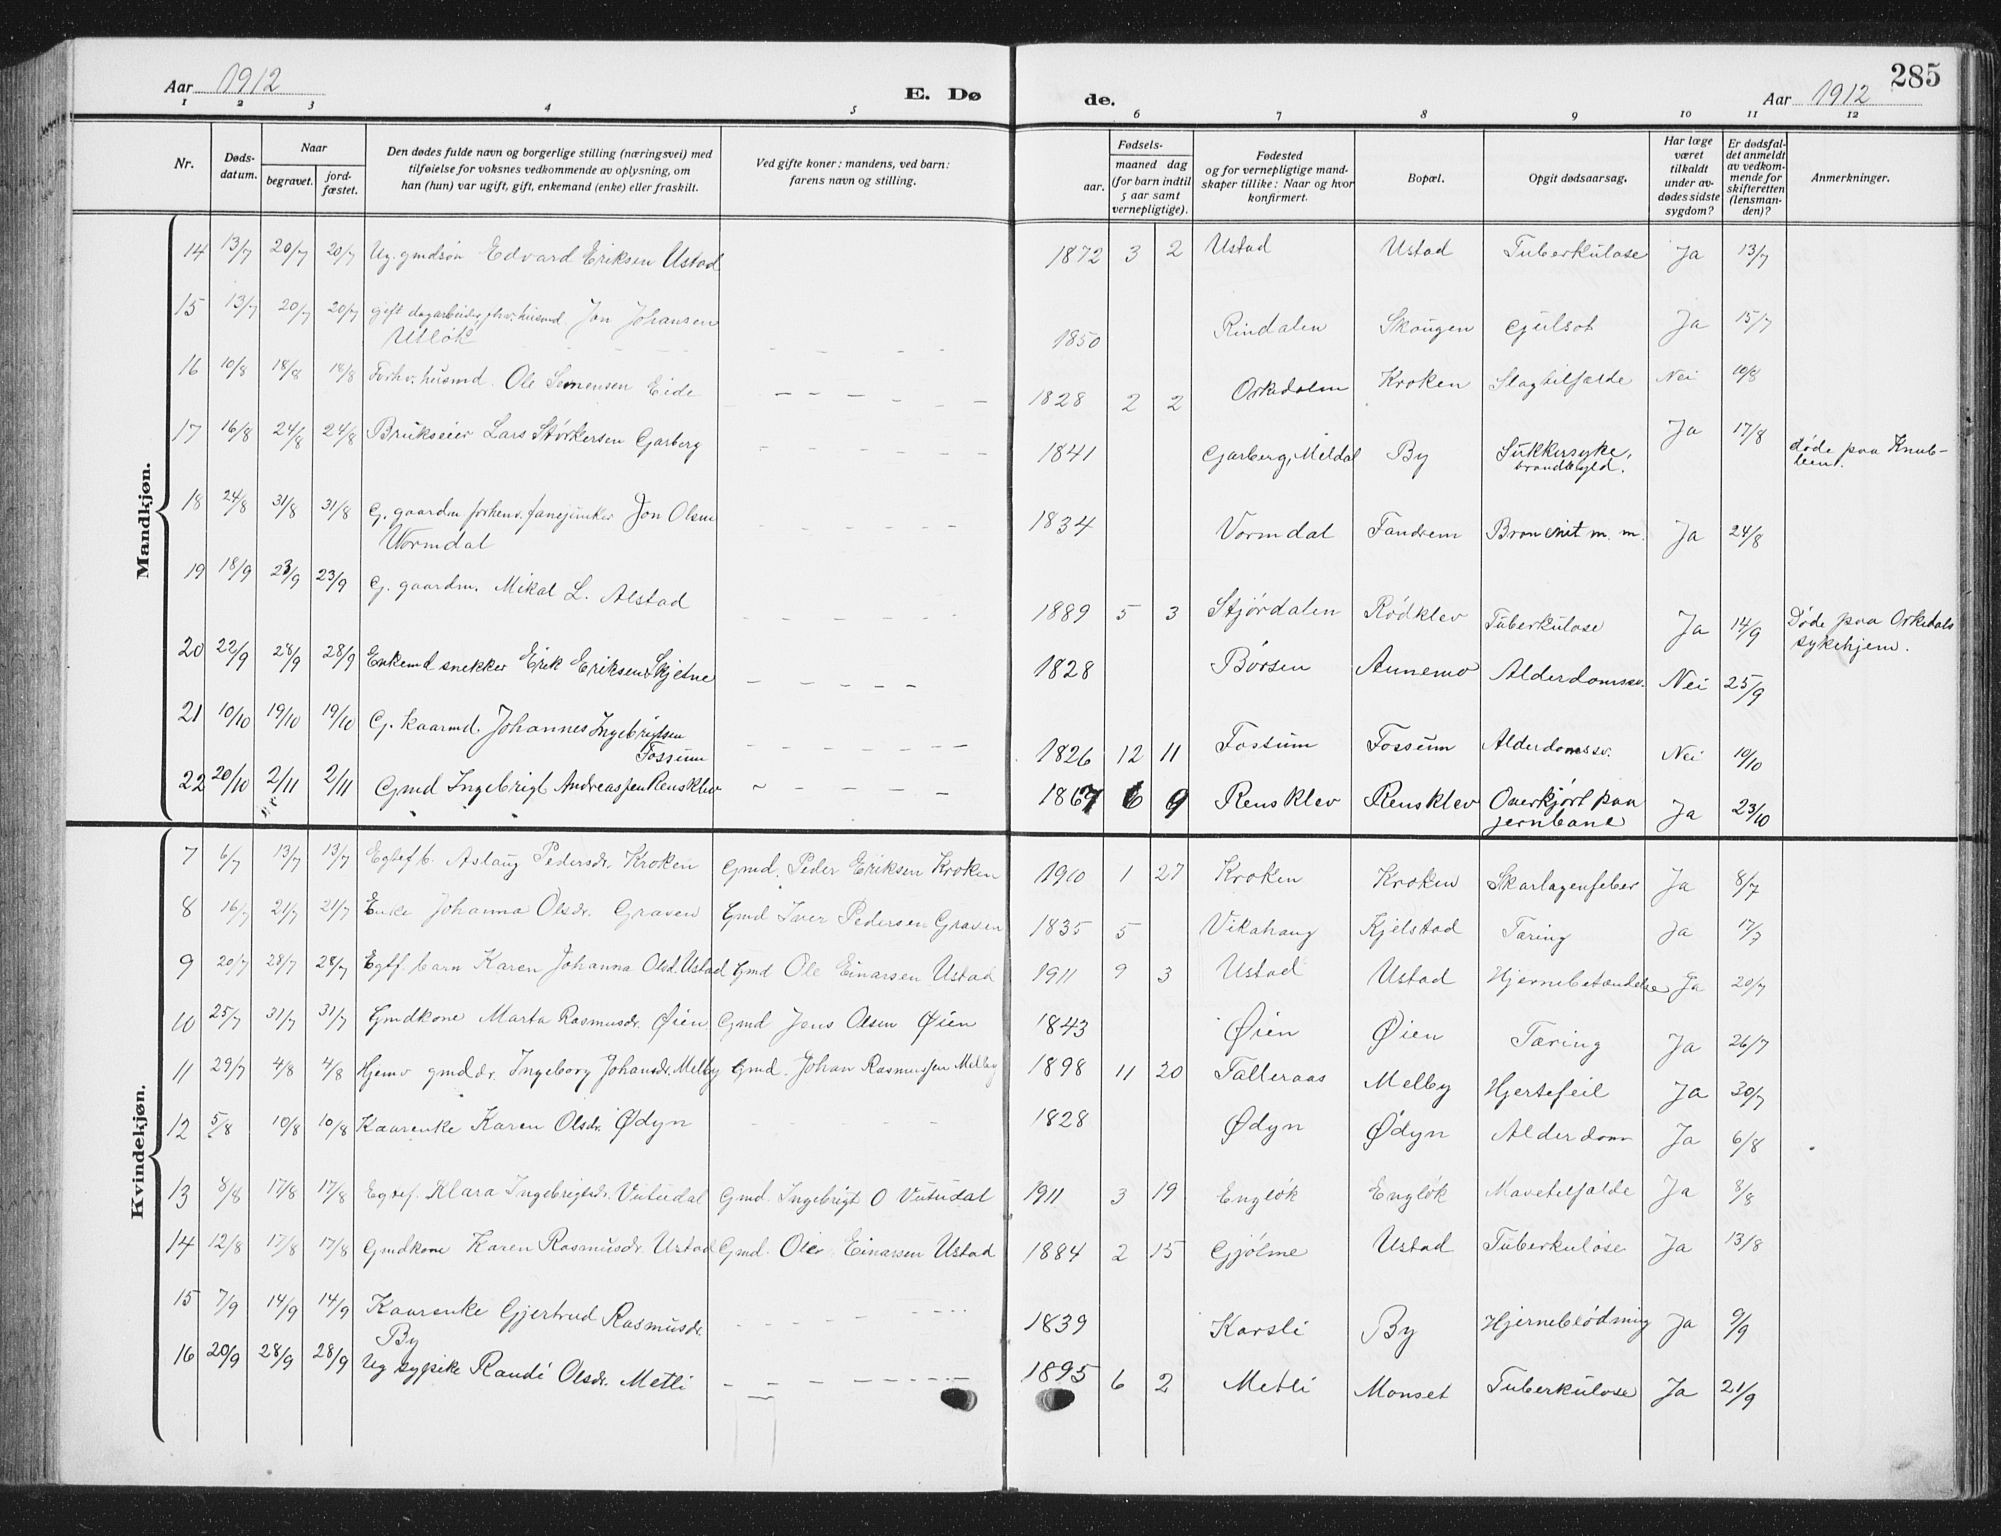 285
Aar 1912
E. Dø
de.
Aar 1912
1 2 3 4 5 6 7 8 9 10 11 12
Nr.
Døds-
datum.
Naar
begravet.
jord-
fæstet.
Den dødes fulde navn og borgerlige stilling (næringsvei) med
tilføielse for voksnes vedkommende av oplysning, om
han (hun) var ugift, gift, enkemand (enke) eller fraskilt.
Ved gifte koner: mandens, ved barn:
farens navn og stilling.
Fødsels-
aar.
maaned dag
(for barn indtil
5 aar samt
vernepligtige).
Fødested
og for vernepligtige mand-
skaper tillike: Naar og hvor
konfirmert.
Bopæl.
Opgit dødsaarsag.
Har læge
været
tilkaldt
under av-
dødes sidste
sygdom?
Er dødsfal-
det anmeldt
av vedkom-
mende for
skifteretten
(lensman-
den)?
Anmerkninger.
Mandkjøn.
14 13/7 20/7 20/7 Ug. gmdsøn Edvard Eriksen Ustad 1872 3 2 Ustad Ustad Tuberkulose Ja 13/7
15 13/7 20/7 20/7 gift dagarbeider, fhv. husmd. Jon Johansen 1850 Rindalen Skougen Gulsot Ja 15/7
Utløk
16 10/8 18/8 18/8 Forhv. husmd. Ole Simensen Eide 1828 2 2 Orkedalen Kroken Slagtilfælde Nei 10/8
17 16/8 24/8 24/8 Brukseier Lars Størkersen Garberg 1841 Garberg, Meldal By Sukkersyke, Ja 17/8 døde paa Knub-
18 24/8 31/8 31/8 G. gaardm forhenv. fanejunker Jon Olsen 1834 Vormdal Fandrem Bronchit m. m. Ja 24/8
Wormdal
19 18/9 23/9 23/9 G. gaardm. Mikal L. Alstad 1889 5 3 Stjørdalen Rødklev Tuberkulose Ja 14/9 Døde paa Orkedals
sykehjem.
20 22/9 28/9 28/9 Enkemd snekker Erik Eriksen Skjetne 1828 Børsen Aunemo Alderdomssv. Nei 25/9
21 10/10 19/10 19/10 G. kaarmd. Johannes Ingebrigtsen 1826 12 11 Fossum Fossum Alderdomssv. Nei 10/10
Fossum
22 20/10 2/11 2/11 Gmd Ingebrigt Andreassen Rensklev 1867 6 9 Rensklev Rensklev Overkjørt paa Ja 23/10
jernbane
Kvindekjøn.
7 6/7 13/7 13/7 Egtef b. Aslaug Pedersdr. Kroken Gmd. Peder Eriksen Kroken 1910 1 27 Kroken Kroken Skarlagenfeber Ja 8/7
8 16/7 21/7 21/7 Enke Johanna Olsdr. Graven Gmd Iver Pedersen Graven 1835 5 Vikahaug Kjelstad Tæring Ja 17/7
9 20/7 28/7 28/7 Egtf. barn Karen Johanna Olsd. Ustad Gmd Ole Einarsen Ustad 1911 9 3 Ustad Ustad Hjernebetændelse Ja 20/7
10 25/7 31/7 31/7 Gmdkone Marta Rasmusdr. Øien Gmd Jens Olsen Øien 1843 Øien Øien Tæring Ja 26/7
11 29/7 4/8 4/8 Hjemv gmddr. Ingeborg Johansdr. Melby Gmd. Johan Rasmussen Melby 1898 11 20 Talleraas Melby Hjertefeil Ja 30/7
12 5/8 10/8 10/8 Kaarenke Karen Olsdr. Ødyn 1828 Ødyn Ødyn Alderdom Ja 6/8
13 8/8 17/8 17/8 Egtef. Klara Ingebrigtsdr. Vutudal Gmd. Ingebrigt O Vutudal 1911 3 19 Engløk Engløk Mavetilfælde Ja 8/8
14 12/8 17/8 17/8 Gmdkone Karen Rasmusdr. Ustad Gmd. Ole Einarsen Ustad 1884 2 15 Gjølme Ustad Tuberkulose Ja 13/8
15 7/9 14/9 14/9 Kaarenke Gjertrud Rasmusdr. 1839 Karsli By Hjerneblødning Ja 9/9
By
16 20/9 28/9 28/9 Ug sypike Randi Olsdr. Metli 1895 6 2 Metli Monset Tuberkulose Ja 21/9